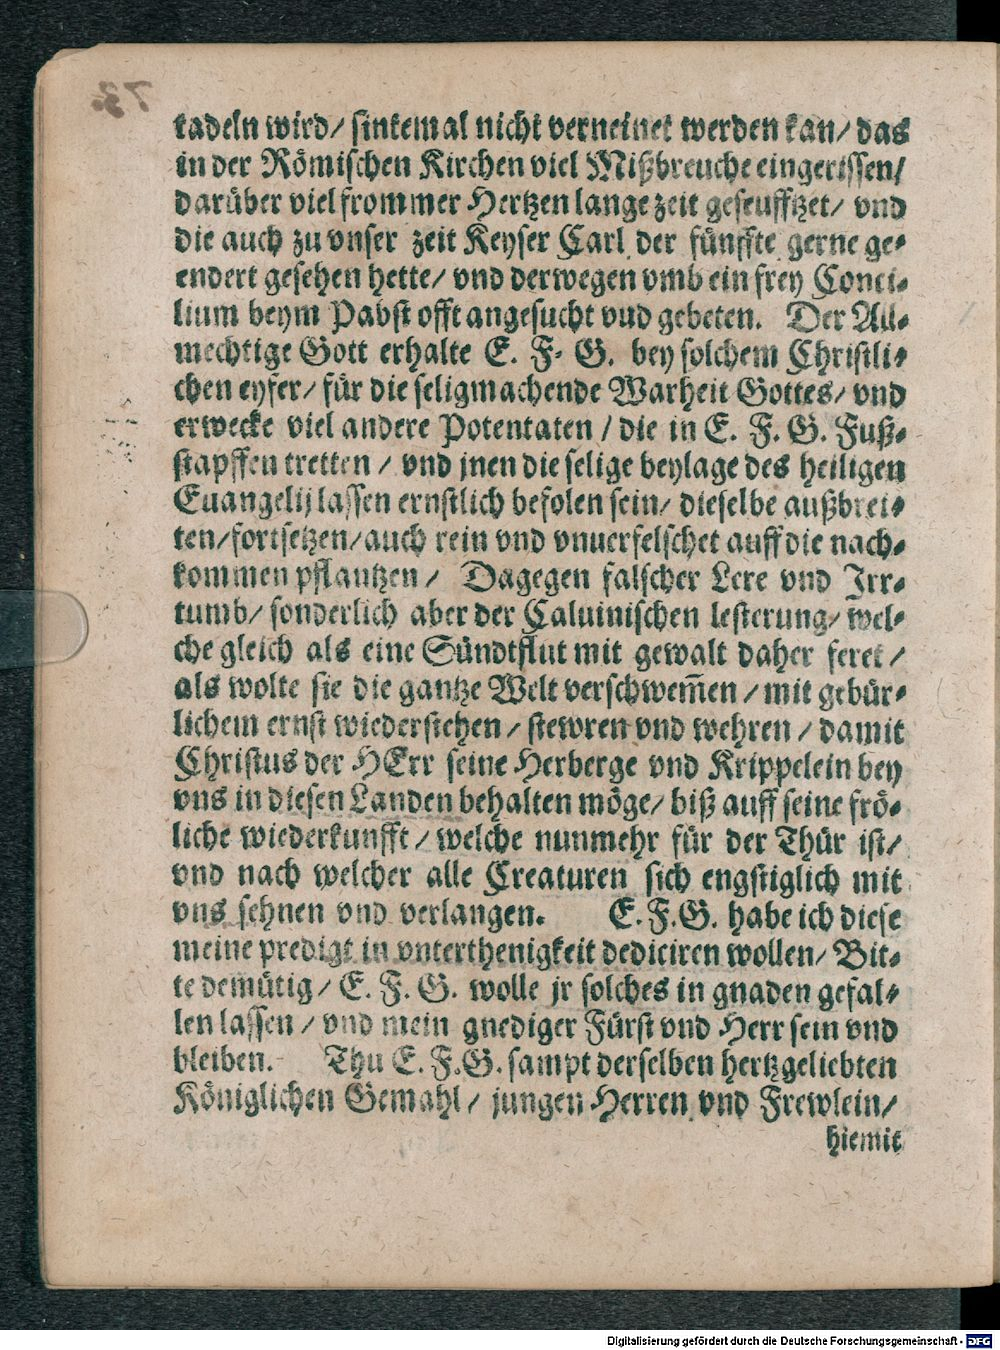 tadeln wird/ sintemal nicht verneinet werden kan/ das
in der Römischen Kirchen viel Mißbreuche eingerissen/
darüber viel frommer Hertzen lange zeit geseufftzet/ vnd
die auch zu vnser zeit Keyser Carl der fünffte gerne ge-
endert gesehen hette/ vnd derwegen vmb ein frey Conci-
lium beym Pabst offt angesucht vnd gebeten. Der All-
mechtige Gott erhalte E. F. G. bey solchem Christli-
chen eyfer/ für die seligmachende Warheit Gottes/ vnd
erwecke viel andere Potentaten / die in E. F. G. Fuß-
stapffen tretten / vnd jnen die selige beylage des heiligen
Euangelij lassen ernstlich befolen sein/ dieselbe außbrei-
ten/fortsetzen/auch rein vnd vnuerfelschet auff die nach-
kommen pflantzen / Dagegen falscher Lere vnd Irr-
tumb/ sonderlich aber der Caluinischen lesterung/ wel-
che gleich als eine Sündtflut mit gewalt daher feret /
als wolte sie die gantze Welt verschwem̄en / mit gebür-
lichem ernst wiederstehen / stewren vnd wehren / damit
Christus der HErr seine Herberge vnd Krippelein bey
vns in diesen Landen behalten möge/ biß auff seine frö-
liche wiederkunfft / welche nunmehr für der Thür ist/
vnd nach welcher alle Creaturen sich engstiglich mit
vns sehnen vnd verlangen. E. F. G. habe ich diese
meine predigt in vnterthenigkeit dediciren wollen/ Bit-
te demütig / E. F. G. wolle jr solches in gnaden gefal-
len lassen / vnd mein gnediger Fürst vnd Herr sein vnd
bleiben. Thu E. F. G. sampt derselben hertzgeliebten
Königlichen Gemahl / jungen Herren vnd Frewlein/
hiemit
Digitalisierung gefördert durch die Deutsche Forschungsgemeinschaft - DFG